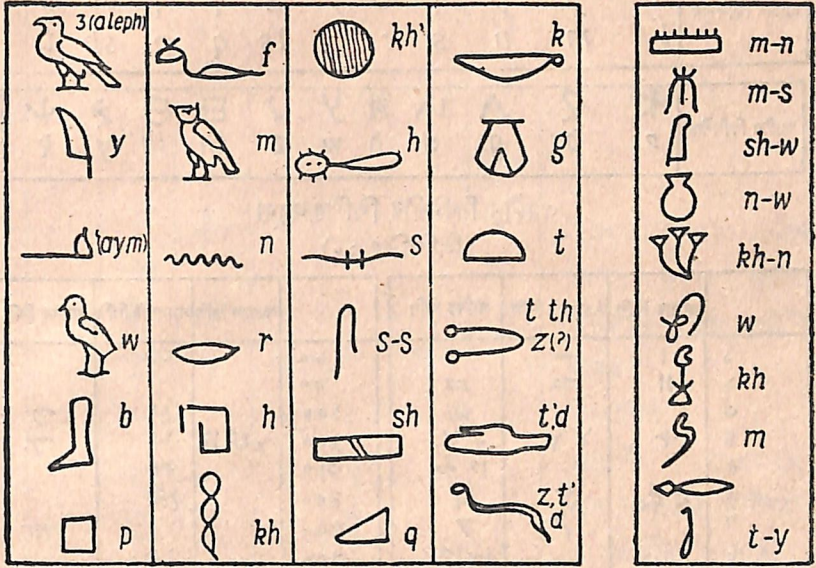 3(aleph)
y
(aym)
w
b
p
f
m
n
r
h
kh
kh'
h
s
s-s
sh
q
k
g
t
t th
z(?)
t',d
z,t'
d
m-n
m-s
sh-w
n-w
kh-n
w
kh
m
t-y